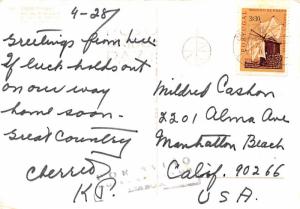 4-28/
Greetings from here
If luck holds out
on our way
home soon -
Great Country
Cherred
K.J.
PORTUGAL
3$30
Mildred Cashon
2201 Alma Ave
Manhattan Beach
Calif. 90266
U.S.A.